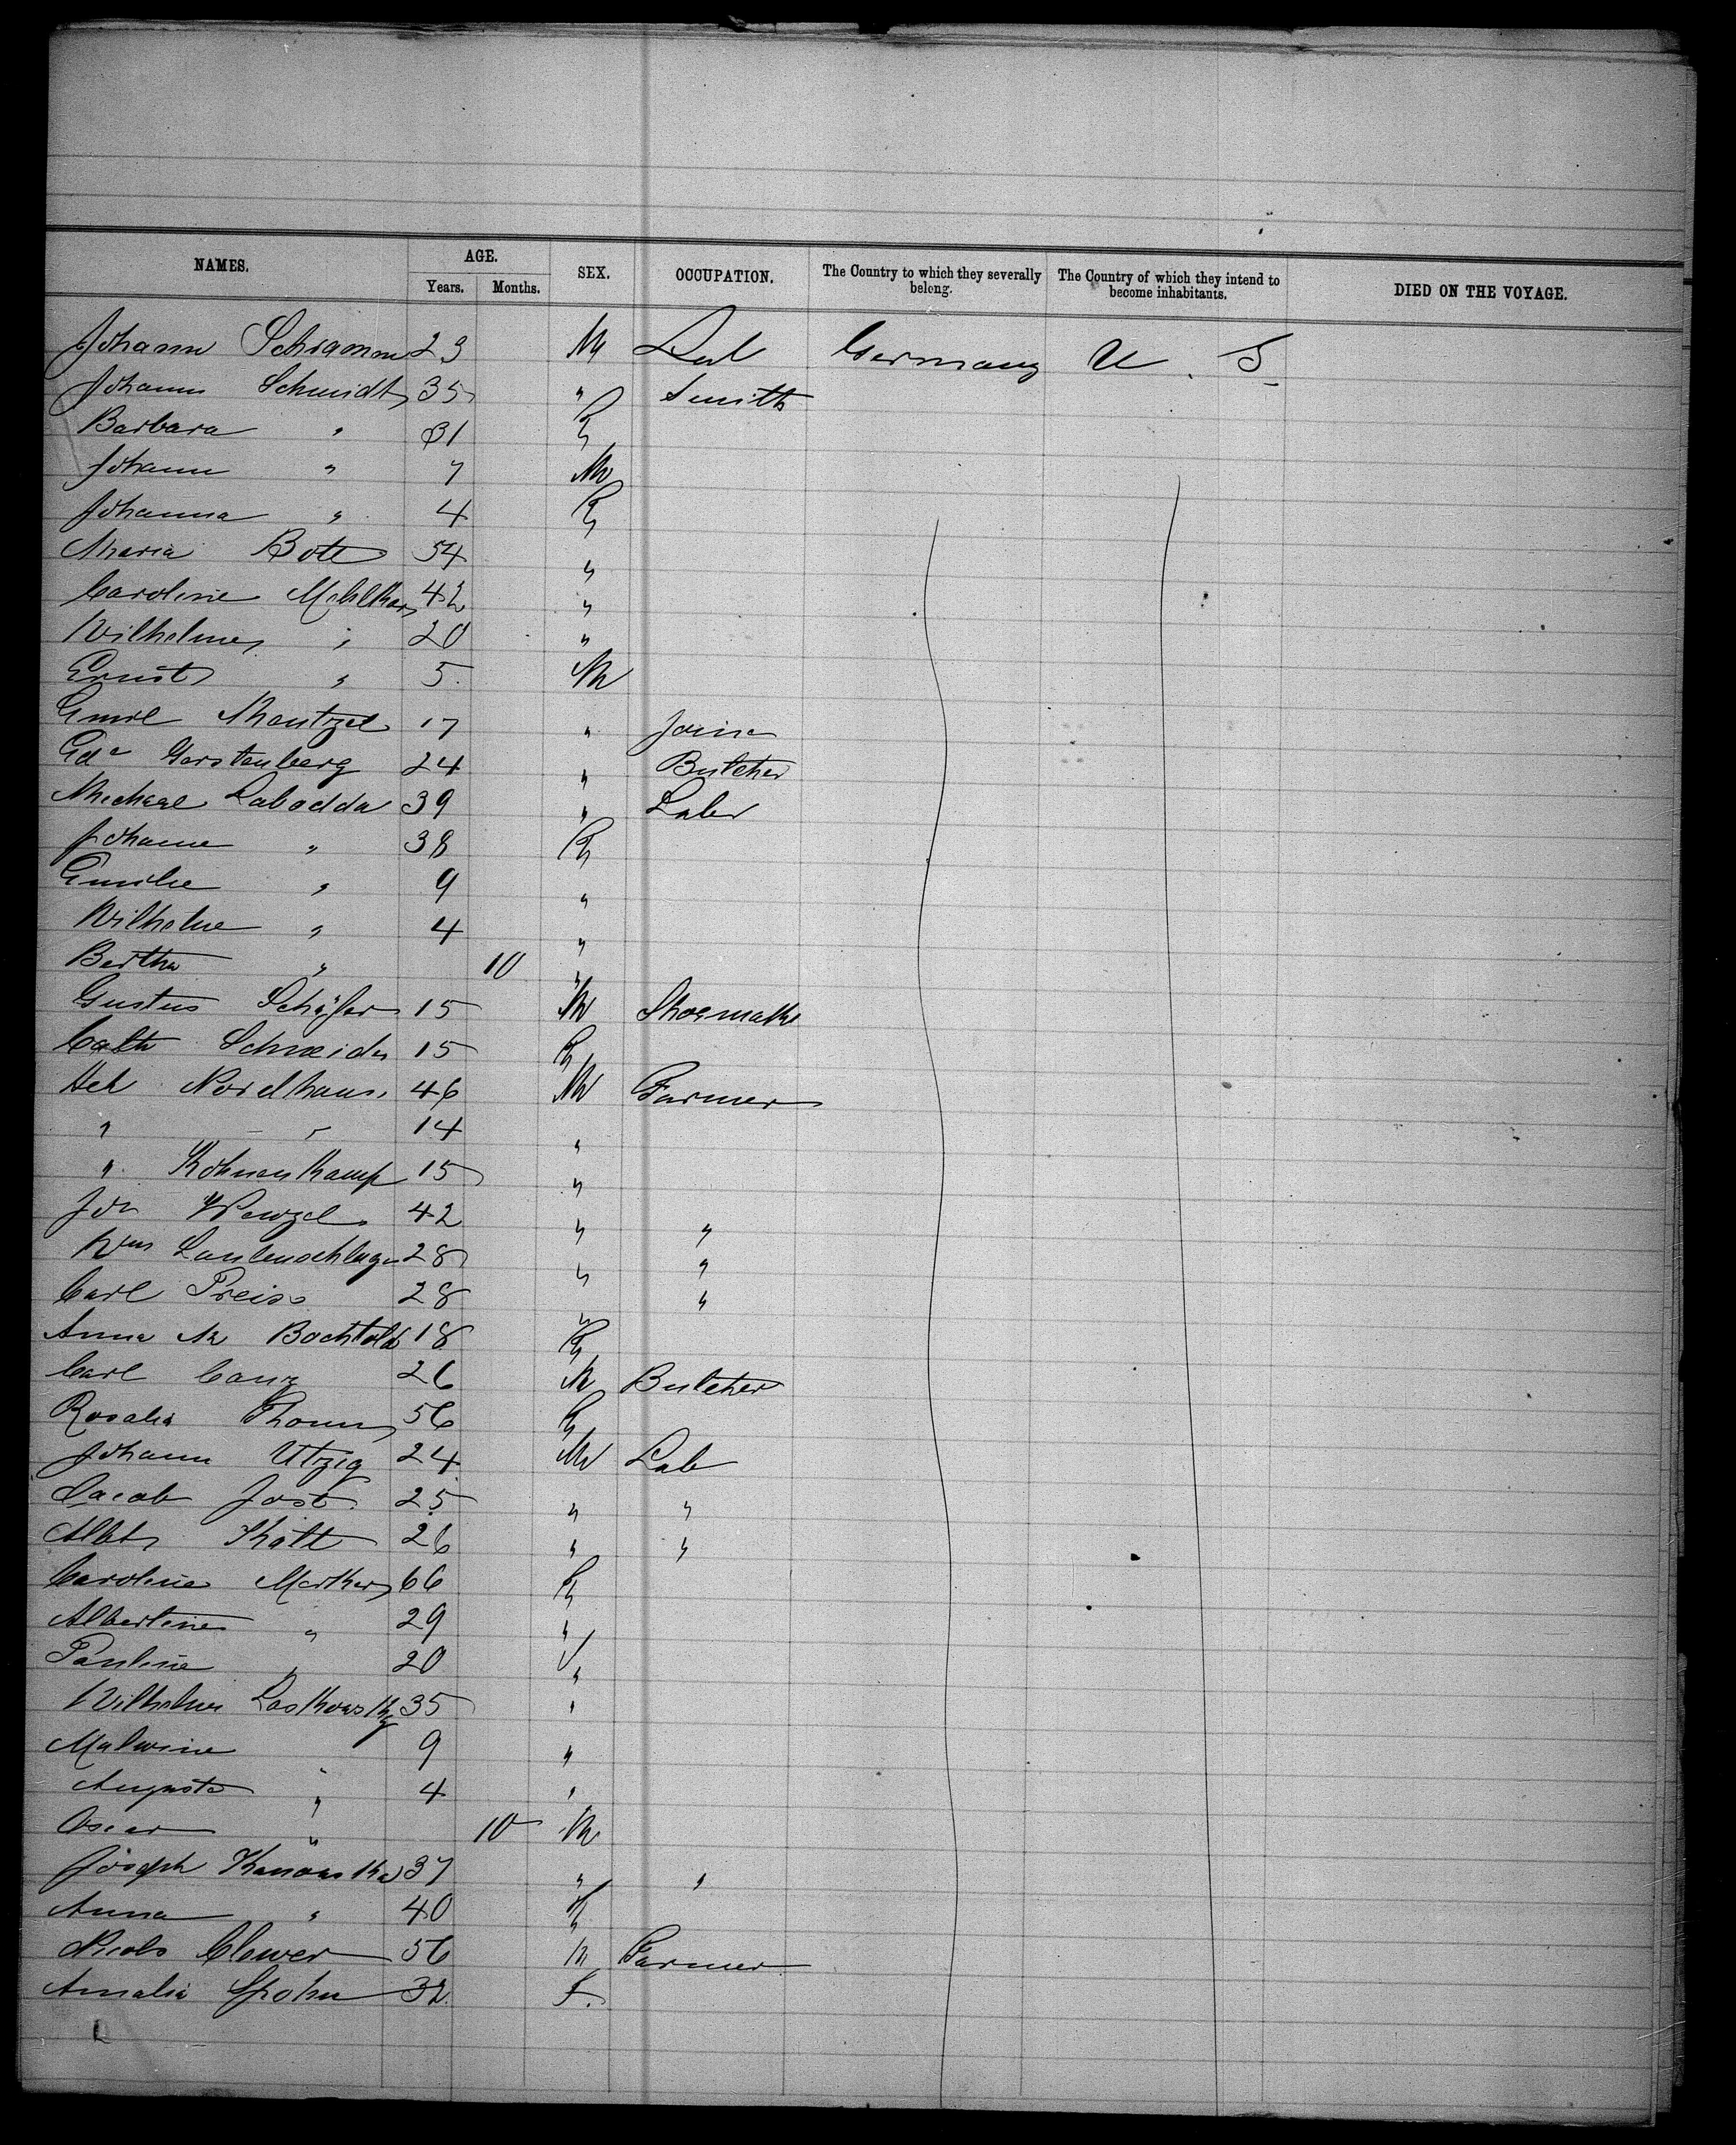 NAMES. AGE. SEX. OCCUPATION. The Country to which they severally belong. The Country of which they intend to become inhabitants. DIED ON THE VOYAGE.
Years. Months.
Johann Schramm 23 M Lab Germany U. S
Johann Schmidt 35 " Smith
Barbara " 31 F
Johann " 7 M
Johanna " 4 F
Maria Bott 54 "
Caroline 42 "
Wilhelmē " 20 "
Ernst " 5 M
Emil Mantzel 17 " Joine
Edd Gerstenberg 24 " Butcher
Michael Labodda 39 " Labr
Johanne " 38 F
Emilie " 9 "
Wilhelme " 4 "
Bertha " 10 "
Gustus Schäfer 15 M Shoemake
Cath Schneider 15 F
Hch Nordhaus 46 M Farmer
" " 14 "
" Kohnenkamp 15 "
Joh Wenzel 42 " "
Wm Lautenschlager 28 " "
Carl Preiss 28 " "
Anna M Bachtold 18 F
Carl Canz 26 M Butcher
Rosalia Thom 56 F
Johann Utzig 24 M Lab
Jacob Jost 25 " "
Albt Kott 26 " "
Caroline 66 F
Albertine " 29 "
Pauline " 20 "
Wilhelme Laskowsky 35 "
Malwine 9 "
Auguste " 4 "
Oscar " 10 M
Joseph 37 " "
Anna " 40 F
Nicols Clewer 56 M Farmer
Amalia Spohn 32 F.